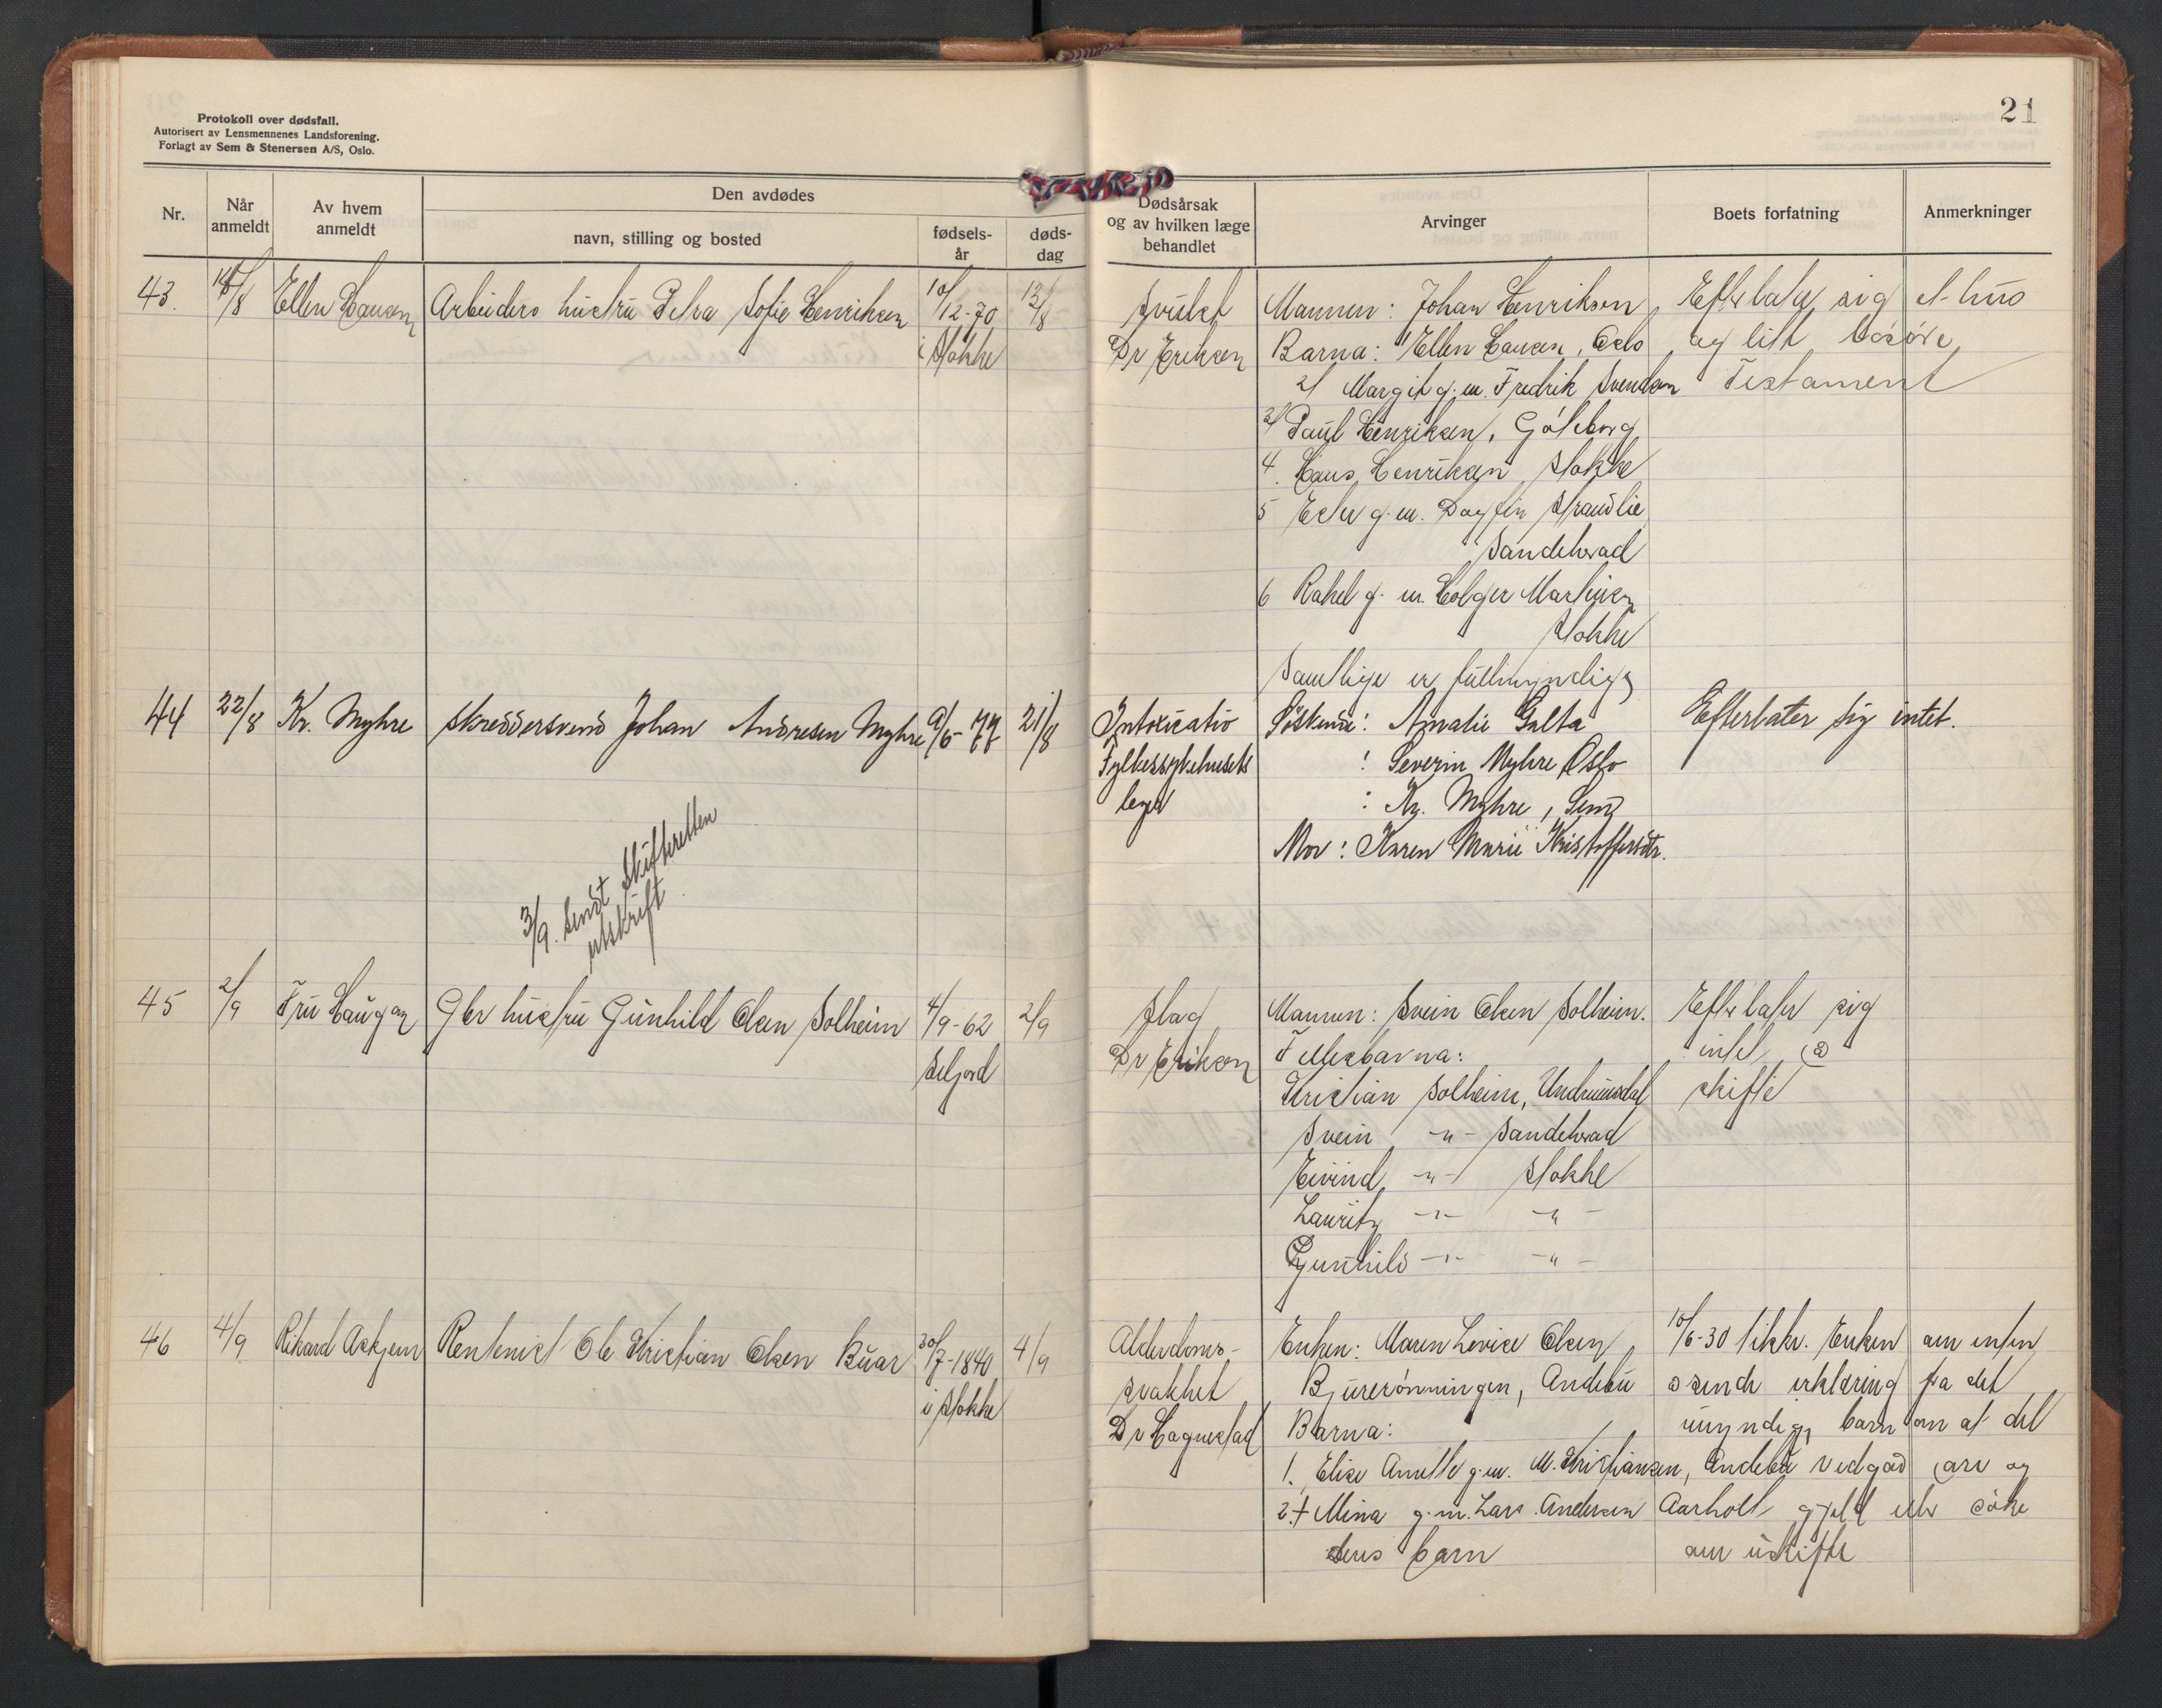 Protokoll over dødsfall.
Autorisert av Lensmennenes Landsforening.
Forlagt av Sem & Stenersen A/S, Oslo.
21
Nr.
Når anmeldt
Av hvem anmeldt
Den avdødes
navn, stilling og bosted
fødsels-år
døds-dag
Dødsårsak og av hvilken læge behandlet
Arvinger
Boets forfatning
Anmerkninger
43. /8 Ellen Hansen Arbeiders hustru Petra Sofie Henriksen 10/12-70 13/8
i Stokke
Dr Eriksen
Mannen: Johan Henriksen
Barna: 1 Ellen Hansen, Oslo
2/ Margit g.m. Fredrik Svendsen
3/ Paul Henriksen, Göteborg
4. Hans Henriksen, Stokke
5 Ester g.m. Dagfin Strandlie
Sandeherad
6 Rakel g.m. Holger Martinsen
Stokke
Samtlige er fullmyndige
Efterlater sig et hus
og litt løsøre
Testament
44 22/8 Kr. Myhre Skreddersvend Johan Andresen Myhre 9/5-77 21/8
3/9. Sendt Skifteretten
utskrift
Intoxicatio
Fylkessykehusets
leger
Söskende: Amalie Galta
: Severin Myhre, Oslo
: Kr. Myhre, Sem
Mor: Karen Marie Kristoffersdtr.
Efterlater sig intet.
45 2/9 Fru Haugan Gbr hustru Gunhild Olsen Solheim 4/9-62 2/9
Seljord
Slag
Dr Eriksen
Mannen: Svein Olsen Solheim.
Fellesbarna:
Kristian Solheim, Undrumsdal
Svein -"- Sandeherad
Eivind -"- Stokke
Lauritz -"- -"-
Gunhild -"- -"-
Efterlater sig
intet å
skifte
46 4/9 Rikard Askjem Rentenist Ole Kristian Olsen Buar 30/7-1840 4/9
i Stokke
Alderdoms-
svakhet
Dr Hagnestad
Enken: Maren Lovise Olsen
Bjuerönningen, Andebu
Barna:
1. Elise Anette g.m. M. Kristiansen, Andebu
2.† Mina g.m. Lars Andersen Aarholt
dens barn
10/6-30 tilskr. Enken om enten
å sende erklæring fra det
umyndige barn om at det
vedgår arv og
gjeld eller söke
om uskifte